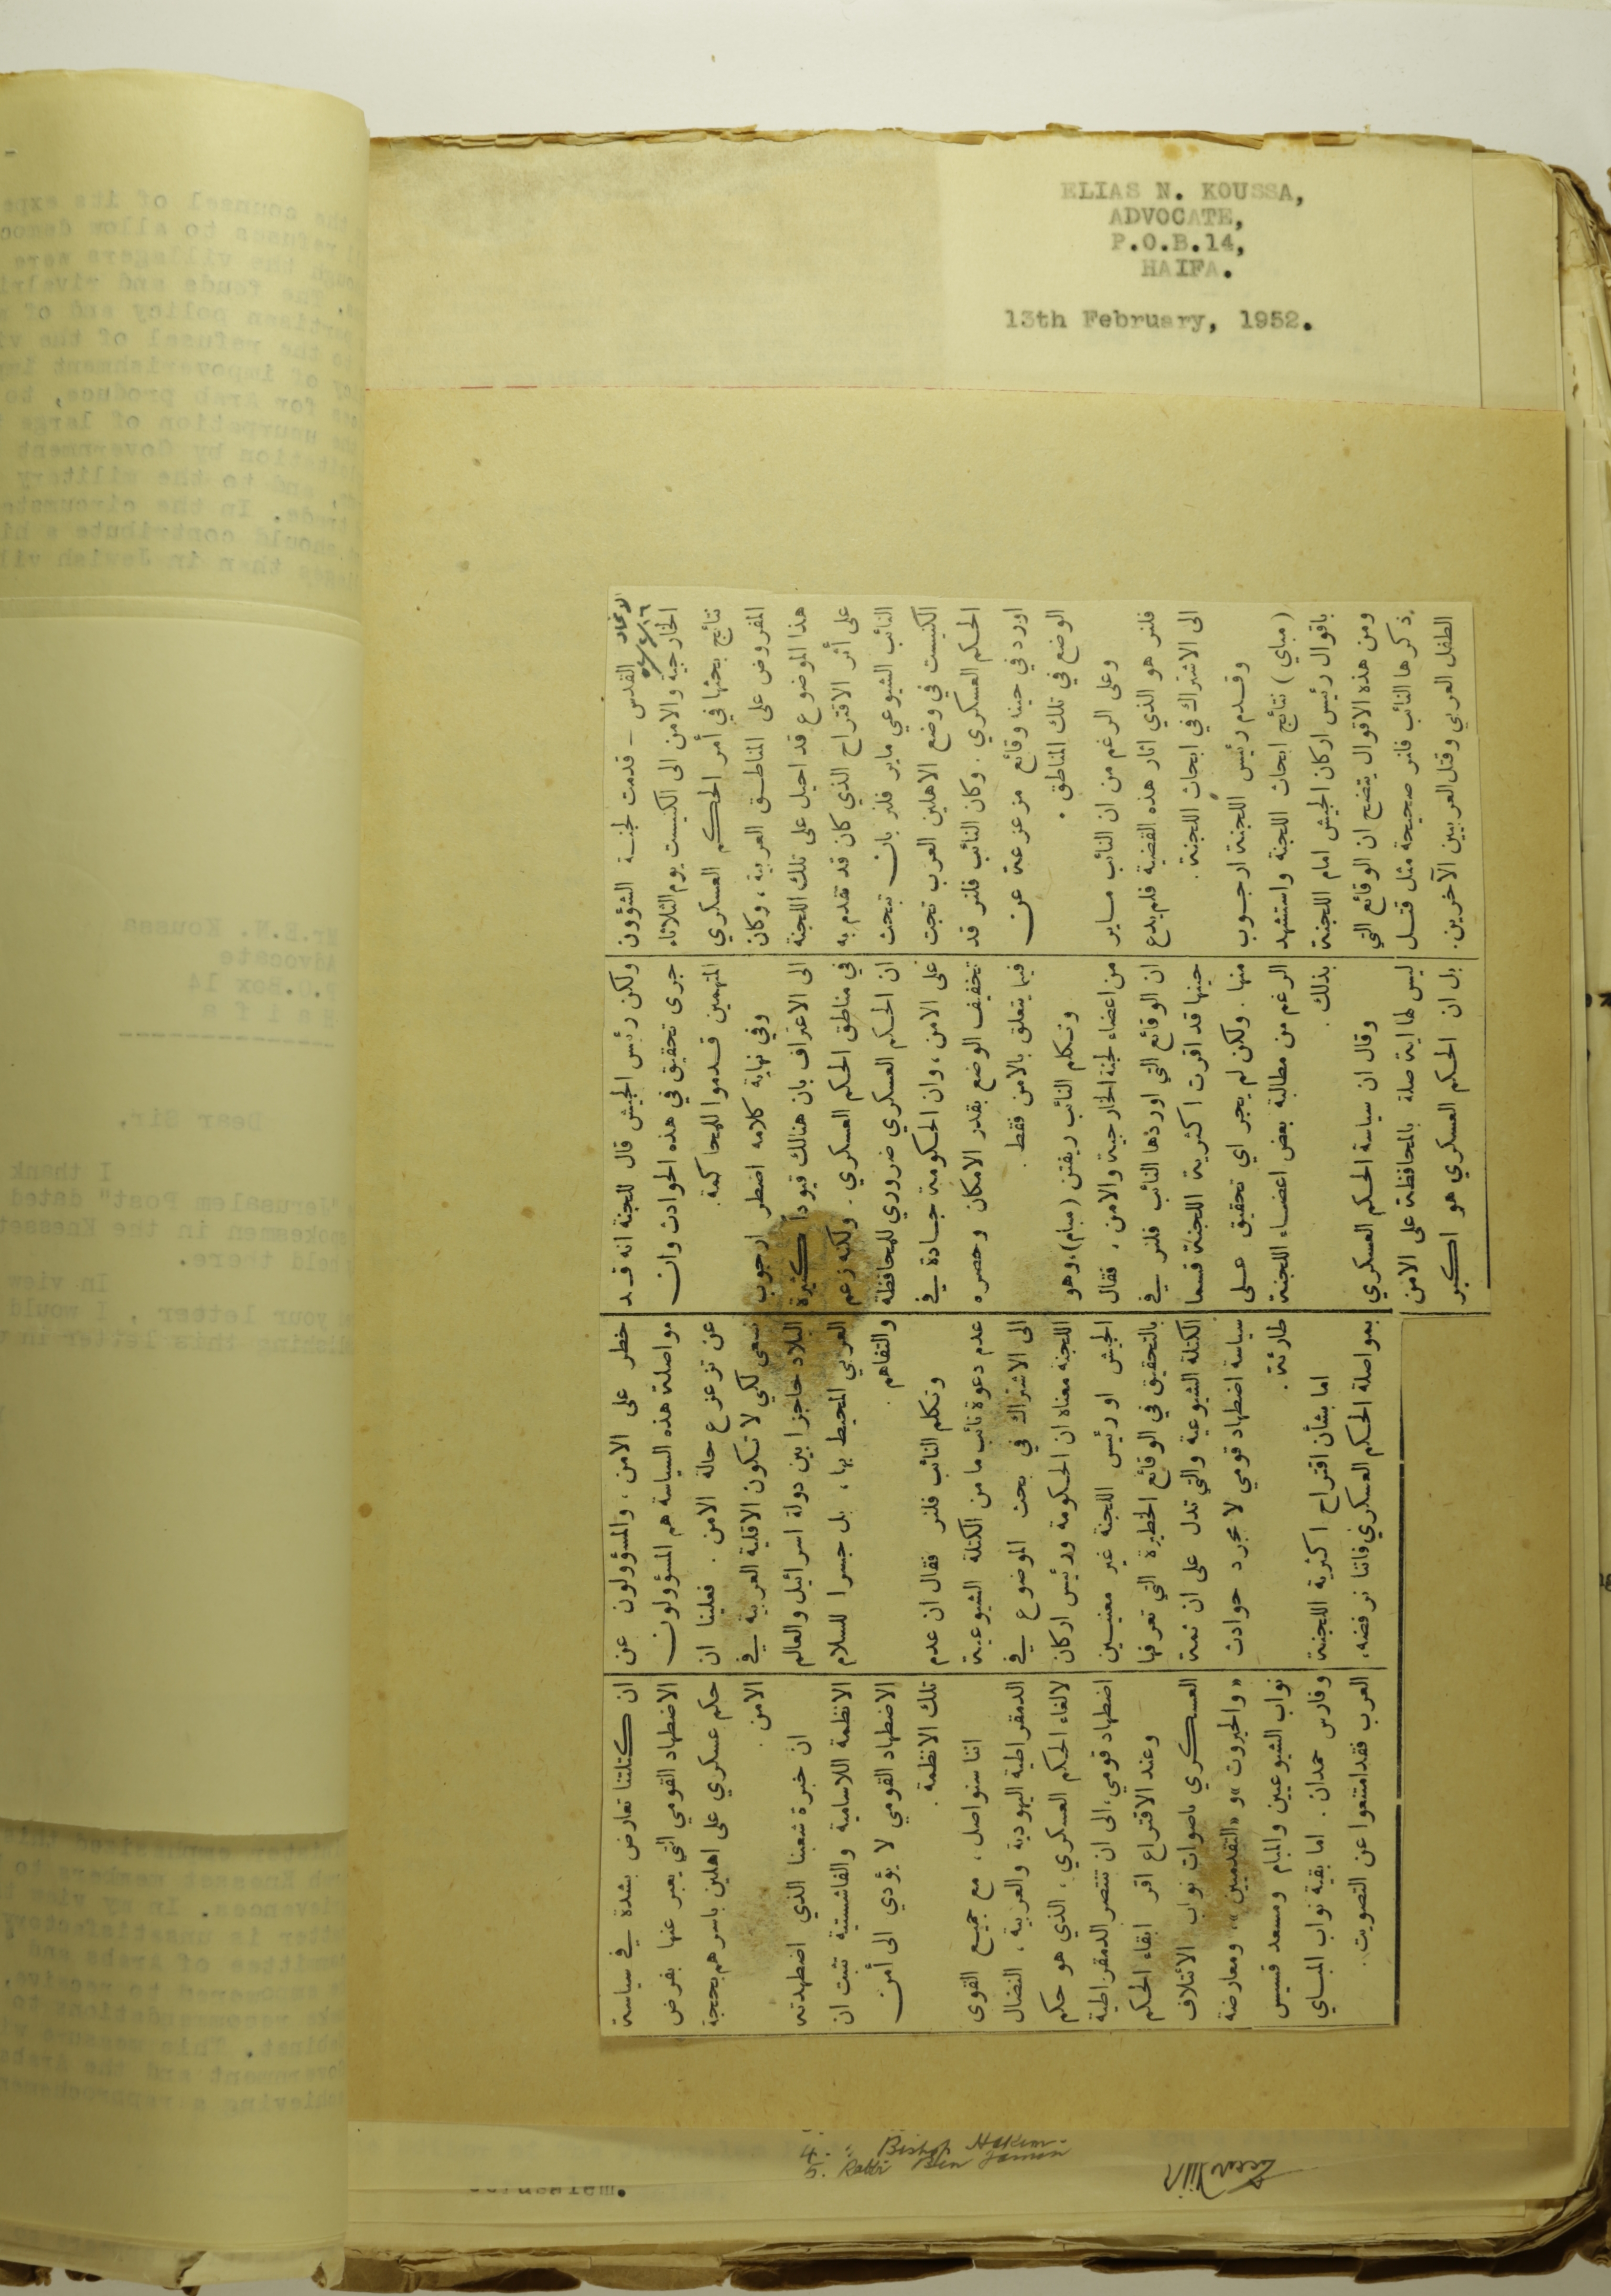 ELIAS N. KOUSSA,
ADVOCATE,
P.O.B.14,
HAIFA.
13th February, 1952.
الاتحاد
القدس – قدمت لجنة الشؤون
الخارجية والامن الى الكنيست يوم الثلاثاء
نتائج بحثها في أمر الحكم العسكري
المفروض على المناطق العربية ، وكان
هذا الموضوع قد احيل على تلك اللجنة
على أثر الاقتراح الذي كان قد تقدم به
النائب الشيوعي ماير فلنر بان تبحث
الكنيست في وضع الاهلين العرب تحت
الحكم العسكري . وكان النائب فلنر قد
اورد في حينا وقائع مزعزعة عن
الوضع في تلك المناطق .
وعلى الرغم من ان النائب ماير
فلنر هو الذي اثار هذه القضية فلم يدع
الى الاشتراك في ابحاث اللجنة .
وقدم رئيس اللجنة ارجوب
(مباي) نتائج ابحاث اللجنة واستشهد
باقوال رئيس اركان الجيش امام اللجنة
ومن هذه الاقوال يتضح ان الوقائع التي
ذكرها النائب فلنر صحيحة مثل قتل
الطفل العربي وقتل العربيين الآخرين .
ولكن رئيس الجيش قال للجنة انه قد
جرى تحقيق في هذه الحوادث وان
المتهمين قدموا للمحاكمة .
وفي نهاية كلامه اضطر ارجوب
الى الاعتراف بان هنالك قيوداً كثيرة
في مناطق الحكم العسكري . ولكنه زعم
ان الحكم العسكري ضروري للمحافظة
على الامن ، وان الحكومة جادة في
تخفيف الوضع بقدر الامكان وحصره
فيما يتعلق بالامن فقط .
وتكلم النائب ريفتن (مبام) ، وهو
من اعضاء لجنة الخارجية والامن ، فقال
ان الوقائع التي اوردها النائب فلنر في
حينها قد اقرت اكثرية اللجنة قسما
منها . ولكن لم يجر اي تحقيق على
الرغم من مطالبة بعض اعضاء اللجنة
بذلك .
وقال ان سياسة الحكم العسكري
ليس لها اية صلة بالمحافظة على الامن
بل ان الحكم العسكري هو اكبر
خطر على الامن ، والمسؤولون عن
مواصلة هذه السياسة هم المسؤولون
عن تزعزع حالة الامن . فعلينا ان
نسعى لكي لا تكون الاقلية العربية في
البلاد حاجزا بين دولة اسرائيل والعالم
العربي المحيط بها ، بل جسرا للسلام
والتفاهم .
وتكلم النائب فلنر فقال ان عدم
عدم دعوة نائب ما من الكتلة الشيوعية
الى الاشتراك في بحث الموضوع في
اللجنة معناه ان الحكومة ورئيس اركان
الجيش او رئيس اللجنة غير معنيين
بالتحقيق في الوقائع الخطيرة التي تعرفها
الكتلة الشيوعية والتي تدل على ان ثمة
سياسة اضطهاد قومي لا مجرد حوادث
طارئة .
اما بشأن اقتراح اكثرية اللجنة
بمواصلة الحكم العسكري فاننا نرفضه .
ان كتلتنا تعارض بشدة في سياسة
الاضطهاد القومي التي يعبر عنها بفرض
حكم عسكري على اهلين باسرهم بحجة
الامن .
ان خبرة شعبنا الذي اضطهدته
الانظمة اللاسامية والفاشستية تثبت ان
الاضطهاد القومي لا يؤدي الى أمن
تلك الانظمة .
اننا سنواصل ، مع جميع القوى
الدمقراطية اليهودية والعربية ، النضال
لالغاء الحكم العسكري ، الذي هو حكم
اضطهاد قومي ، الى ان تنتصر الدمقراطية
وعند الاقتراع اقر ابقاء الحكم
العسكري باصوات نواب الائتلاف
«والحيروت» و«التقدميين» ، ومعارضة
نواب الشيوعيين والمبام ومسعد قسيس
وفارس حمدان . اما بقية نواب المباي
العرب فقد امتنعوا عن التصويت .
4. " Bishop Hakim
5. Rabbi Ben